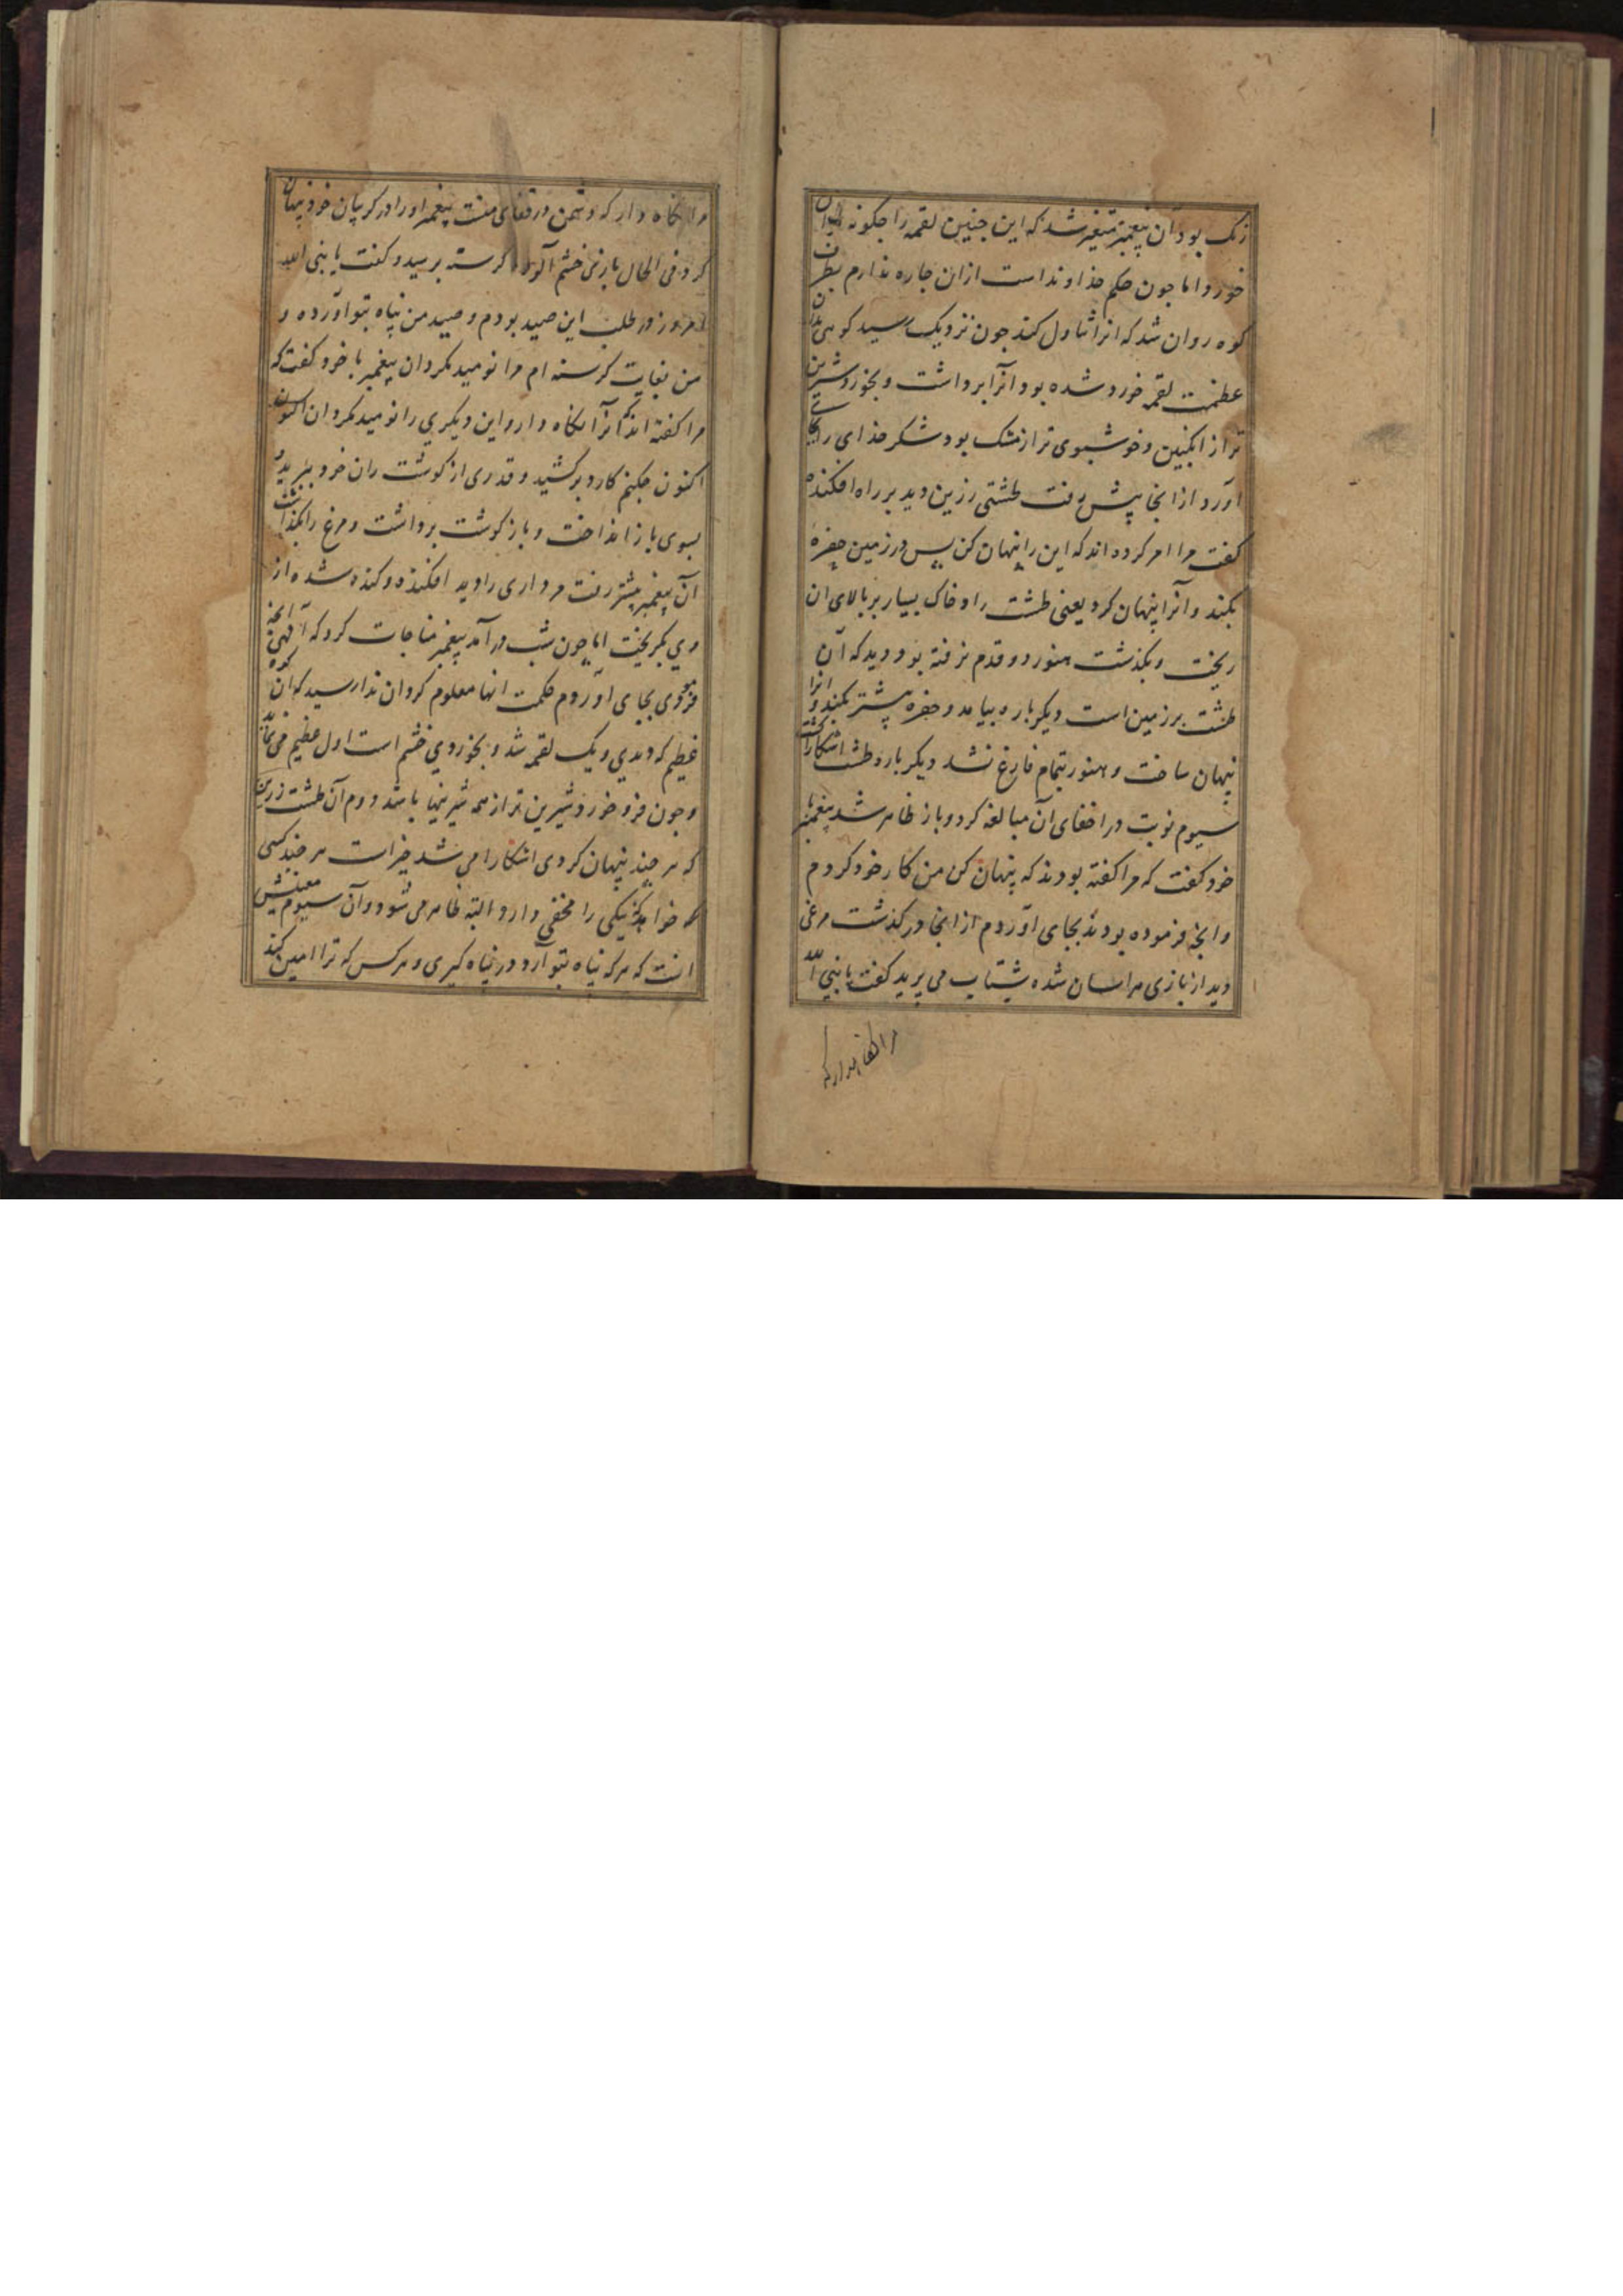 رنک بود آن پیغمبر متغیر شد که این جنین لقمه را جکونه توان
خورد اما جون حکم خداوند است ازان جاره ندارم بطرف
کوه روان شد که انرا تناول کند جون نزدیک رسید کوهی بدان
عظمت لقمه خورد شده بود انرا برداشت و بخورد شیرین
تر از انکبین و خوشبوی تر از مشک بود شکر خدای را بجای
آورد از انجا پیش رفت طشتی زرین دید بر راه افکنده
کفت مرا امر کرده اند که این را پنهان کن پس در زمین حفره
بکند و انرا پنهان کرد یعنی طشت را و خاک بسیار بر بالای ان
ریخت و بکذشت هنوز دو قدم نرفته بود و دید که آن
طشت بر زمین است دیکر باره بیامد و حفره پیشتر بکند و انرا
پنهان ساخت و هنوز بتمام فارغ نشد دیکر باره طشت اشکارا کشت
سیوم نوبت در اخفای آن مبالغه کرد و باز ظاهر شد پیغمبر با
خود کفت که مرا کفته بودند که پنهان کن من کار خود کردم
و انجه فرموده بودند بجای آوردم از انجا در کذشت مرغی
دید از بازی هراسان شده بشتاب می پرید کفت یا نبی الله
مرا نکاه دار که
مرا نکاه دار که دشمن در قفای منست پیغمبر او را در کریبان خود پنهان
کرد فی الحال بازی خشم آلود کرسنه برسید و کفت یا نبی الله
امروز در طلب این صید بودم و صید من پناه بتو آورده و
من بغایت کرسنه ام مرا نومید مکردان پیغمبر با خود کفت که
مرا کفته اند که آنرا نکاه دار و این دیکری را نومید مکردان اکنون
اکنون جکنم کارد برکشید و قدری از کوشت ران خود ببرید و
بسوی باز انداخت و باز کوشت برداشت و مرغ را بکذاشت
آن پیغمبر پیشتر رفت مرداری را دید افکنده و کنده شده از
وی بکریخت اما جون شب در آمد پیغمبر مناجات کرد که آلهی آنجه
فرمودی بجای آوردم حکمت انها معلوم کردان ندا رسید که ان کوه
عظیم که دیدی و یک لقمه شد و بخوردی خشم است اول عظیم می نماید
و جون فرو خورد شیرین تر از همه شیرینیها باشد دوم آن طشت زرین
که هر جند پنهان کردی اشکارا می شد خیرات هر جند کسی
که خواهد که نیکی را مخفی دارد البته ظاهر می شود و آن سیوم معنیش
انست که هر که پناه بتو آرد در پناه کیری و هر کس که ترا امین کند